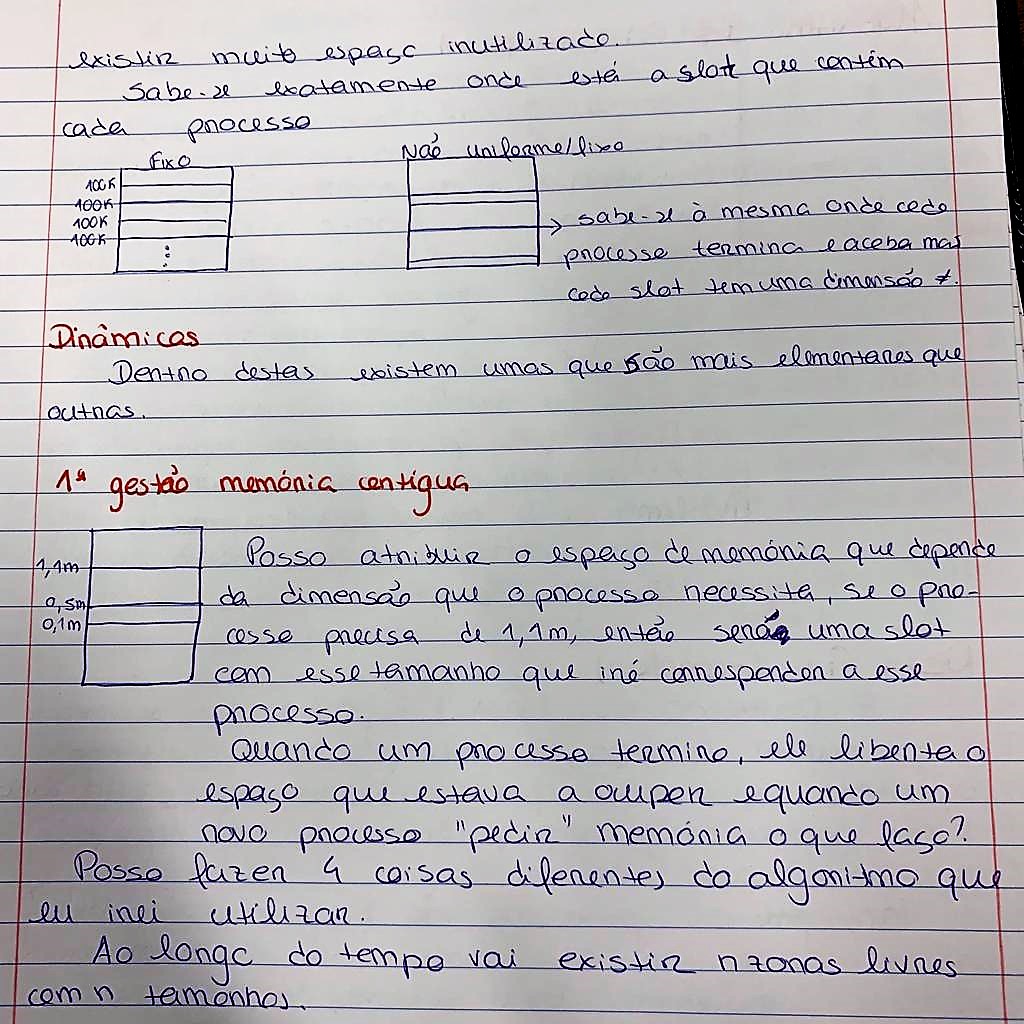 existir muito espaço inutilizado.
Sabe-se exatamente onde está a slot que contém
cada processo
Fixo
Não uniforme/fixo
100K
100K
100K
100K
→ sabe-se à mesma onde cada
processo termina e acaba mas
cada slot tem uma dimensão ≠.
Dinâmicas
Dentro destas existem umas que são mais elementares que
outras.
1ª gestão memória contígua
1,1m
0,5m
0,1m
Posso atribuir o espaço de memória que depende
da dimensão que o processo necessita, se o pro-
cesso precisa de 1,1m, então será uma slot
com esse tamanho que irá corresponder a esse
processo.
Quando um processo termina, ele liberta o
espaço que estava a ocupar e quando um
novo processo "pedir" memória o que faço?
Posso fazer 4 coisas diferentes do algoritmo que
eu irei utilizar.
Ao longo do tempo vai existir n zonas livres
com n tamanhos.